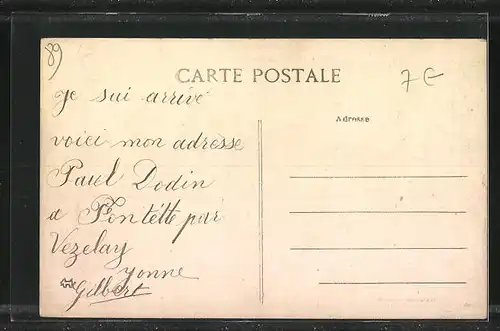 89
CARTE POSTALE
7 €
Adresse
je sui arrivé
voici mon adresse
Paul Dodin
a Fontétte par
Vezelay
Yonne
Gilbert